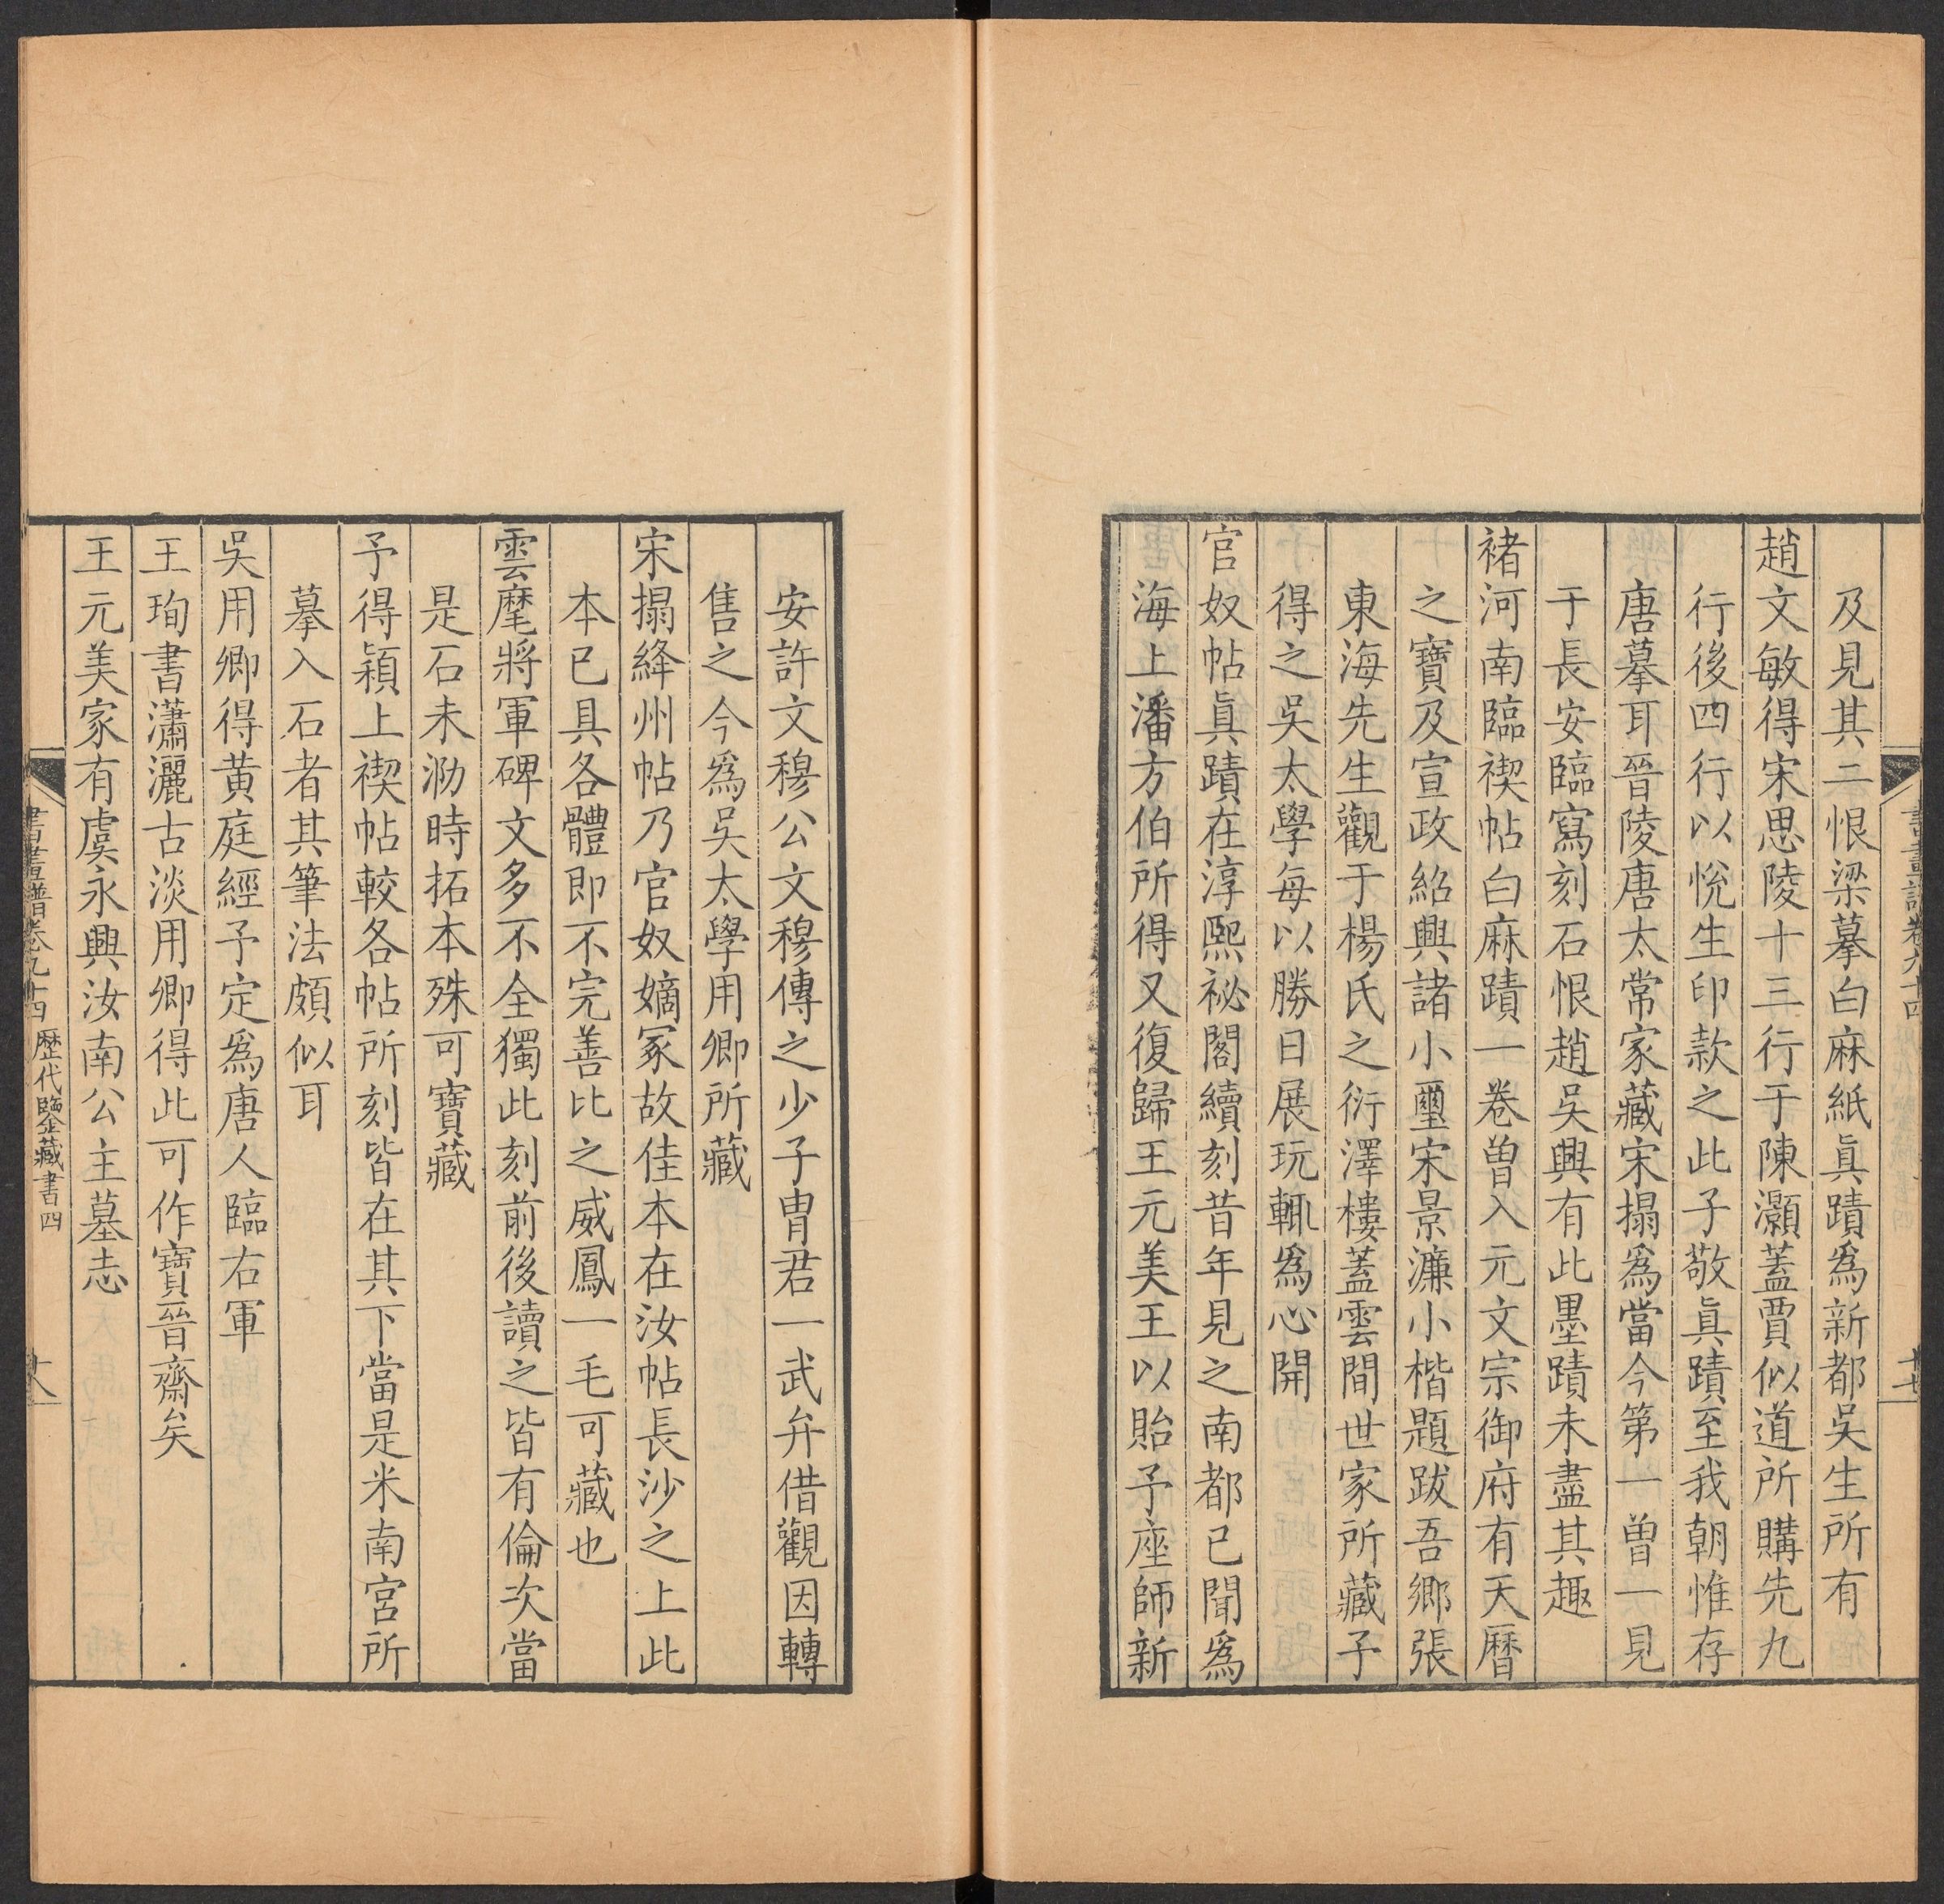 及見其二恨梁摹白麻紙眞蹟爲新都吳生所有
趙文敏得宋思陵十三行于陳灝蓋賈似道所購先九
行後四行以悅生印款之此子敬眞蹟至我朝惟存
唐摹耳晉陵唐太常家藏宋搨爲當今第一曾一見
于長安臨寫刻石恨趙吳興有此墨蹟未盡其趣
褚河南臨禊帖白麻蹟一卷曾入元文宗御府有天曆
之寶及宣政紹興諸小璽宋景濂小楷題跋吾鄉張
東海先生觀于楊氏之衍澤樓蓋雲間世家所藏子
得之吳太學每以勝日展玩輒爲心開
官奴帖眞蹟在淳熙祕閣續刻昔年見之南都已聞爲
海上潘方伯所得又復歸王元美王以貽予座師新
書畫譜卷九十四
十七
安許文穆公文穆傳之少子胄君一武弁借觀因轉
售之今爲吳太學用卿所藏
宋搨絳州帖乃官奴嫡冢故佳本在汝帖長沙之上此
本已具各體即不完善比之威鳳一毛可藏也
雲麾將軍碑文多不全獨此刻前後讀之皆有倫次當
是石未泐時拓本殊可寶藏
予得穎上禊帖較各帖所刻皆在其下當是米南宮所
摹入石者其筆法頗似耳
吳用卿得黃庭經予定爲唐人臨右軍
王珣書瀟灑古淡用卿得此可作寶晉齋矣
王元美家有虞永興汝南公主墓志
書畫譜卷九十四 歷代鑒藏書四
十八